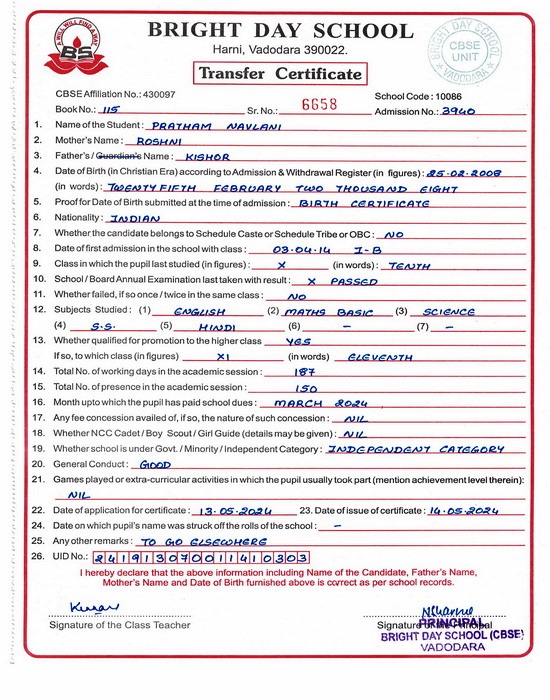 A WILL WILL FIND A WAY
BS
BRIGHT DAY SCHOOL
Harni, Vadodara 390022.
Transfer Certificate
BRIGHT DAY SCHOOL
CBSE
UNIT
VADODARA
CBSE Affiliation No.: 430097
School Code : 10086
Book No.: 115 Sr. No.: 6658 Admission No.: 3940
1. Name of the Student : PRATHAM NAVLANI
2. Mother's Name : ROSHNI
3. Father's / Guardian's Name : KISHOR
4. Date of Birth (in Christian Era) according to Admission & Withdrawal Register (in figures) : 25.02.2008
(in words) : TWENTY FIFTH FEBRUARY TWO THOUSAND EIGHT
5. Proof for Date of Birth submitted at the time of admission : BIRTH CERTIFICATE
6. Nationality : INDIAN
7. Whether the candidate belongs to Schedule Caste or Schedule Tribe or OBC : NO
8. Date of first admission in the school with class : 03.04.14 I-B
9. Class in which the pupil last studied (in figures) : X (in words) : TENTH
10. School / Board Annual Examination last taken with result : X PASSED
11. Whether failed, if so once / twice in the same class : NO
12. Subjects Studied : (1) ENGLISH (2) MATHS BASIC (3) SCIENCE
(4) S.S. (5) HINDI (6) – (7) –
13. Whether qualified for promotion to the higher class YES
If so, to which class (in figures) XI (in words) ELEVENTH
14. Total No. of working days in the academic session : 187
15. Total No. of presence in the academic session : 150
16. Month upto which the pupil has paid school dues : MARCH 2024
17. Any fee concession availed of, if so, the nature of such concession : NIL
18. Whether NCC Cadet / Boy Scout / Girl Guide (details may be given) : NIL
19. Whether school is under Govt. / Minority / Independent Category : INDEPENDENT CATEGORY
20. General Conduct : GOOD
21. Games played or extra-curricular activities in which the pupil usually took part (mention achievement level therein):
NIL
22. Date of application for certificate : 13.05.2024 23. Date of issue of certificate : 14.05.2024
24. Date on which pupil's name was struck off the rolls of the school : –
25. Any other remarks : TO GO ELSEWHERE
26. UID No.: 241913070011410303
I hereby declare that the above information including Name of the Candidate, Father's Name,
Mother's Name and Date of Birth furnished above is correct as per school records.
Signature of the Class Teacher
Signature of the Principal
PRINCIPAL
BRIGHT DAY SCHOOL (CBSE)
VADODARA